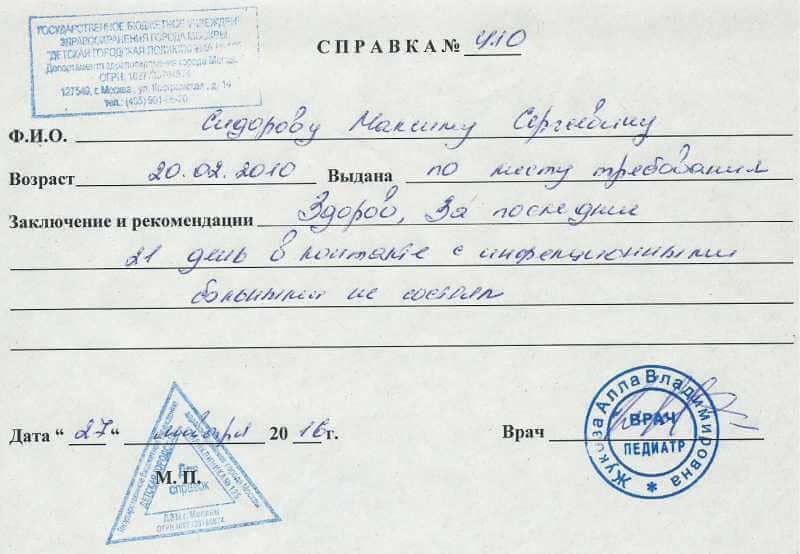 ГОСУДАРСТВЕННОЕ БЮДЖЕТНОЕ УЧРЕЖДЕНИЕ
ЗДРАВООХРАНЕНИЯ ГОРОДА МОСКВЫ
"ДЕТСКАЯ ГОРОДСКАЯ ПОЛИКЛИНИКА
Департамента здравоохранения города Москвы
ОГРН
127549, г. Москва, ул. Костромская, д. 14
тел.: (495)
СПРАВКА № 410
Ф.И.О. Сидорову Максиму Сергеевичу
Возраст 20.02.2010 Выдана по месту требования
Заключение и рекомендации Здоров, За последние
21 день в контакте с инфекционными
больными не состоял
Дата "27" ноября 2016г.
Врач
М. П.
Для
справок
Жукова Алла Владимировна
ВРАЧ
ПЕДИАТР
ДЕТСКАЯ ГОРОДСКАЯ
ПОЛИКЛИНИКА № 125
ДЗ г. Москвы